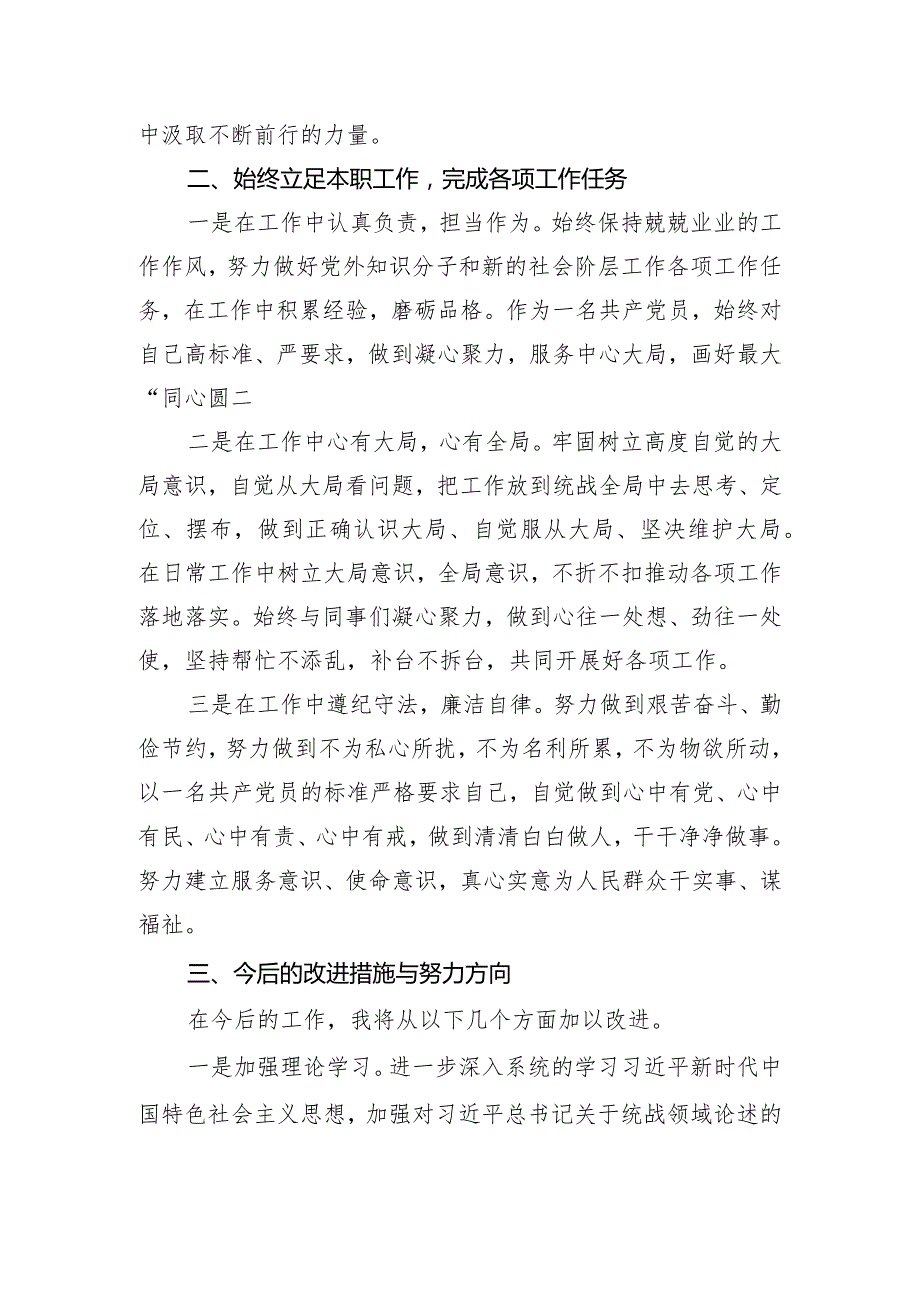 中汲取不断前行的力量。
二、始终立足本职工作，完成各项工作任务
一是在工作中认真负责，担当作为。始终保持兢兢业业的工
作作风，努力做好党外知识分子和新的社会阶层工作各项工作任
务，在工作中积累经验，磨砺品格。作为一名共产党员，始终对
自己高标准、严要求，做到凝心聚力，服务中心大局，画好最大
“同心圆二
二是在工作中心有大局，心有全局。牢固树立高度自觉的大
局意识，自觉从大局看问题，把工作放到统战全局中去思考、定
位、摆布，做到正确认识大局、自觉服从大局、坚决维护大局。
在日常工作中树立大局意识，全局意识，不折不扣推动各项工作
落地落实。始终与同事们凝心聚力，做到心往一处想、劲往一处
使，坚持帮忙不添乱，补台不拆台，共同开展好各项工作。
三是在工作中遵纪守法，廉洁自律。努力做到艰苦奋斗、勤
俭节约，努力做到不为私心所扰，不为名利所累，不为物欲所动，
以一名共产党员的标准严格要求自己，自觉做到心中有党、心中
有民、心中有责、心中有戒，做到清清白白做人，干干净净做事。
努力建立服务意识、使命意识，真心实意为人民群众干实事、谋
福祉。
三、今后的改进措施与努力方向
在今后的工作，我将从以下几个方面加以改进。
一是加强理论学习。进一步深入系统的学习习近平新时代中
国特色社会主义思想，加强对习近平总书记关于统战领域论述的